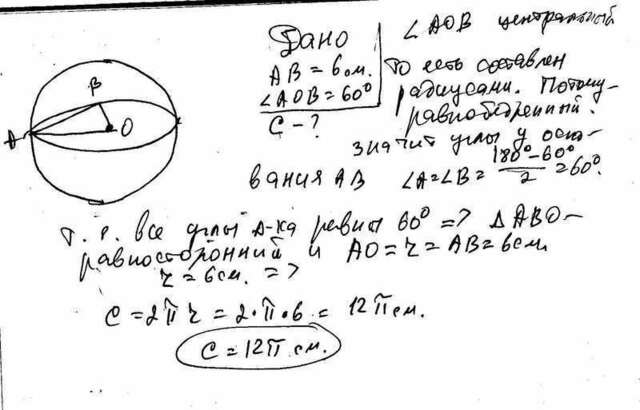 Дано
AB = 6 см.
∠AOB = 60°
C - ?
∠AOB центральный
То есть составлен
радиусами. Потому-
равнобедренный.
значит углы у осно-
вания AB ∠A=∠B= (180°-60°)/2 = 60°.
B
A
O
т. е. все углы Δ-ка равны 60° => ΔABO-
равносторонний и AO = r = AB = 6 см.
r = 6 см. =>
C = 2πr = 2·π·6 = 12π см.
C = 12π см.